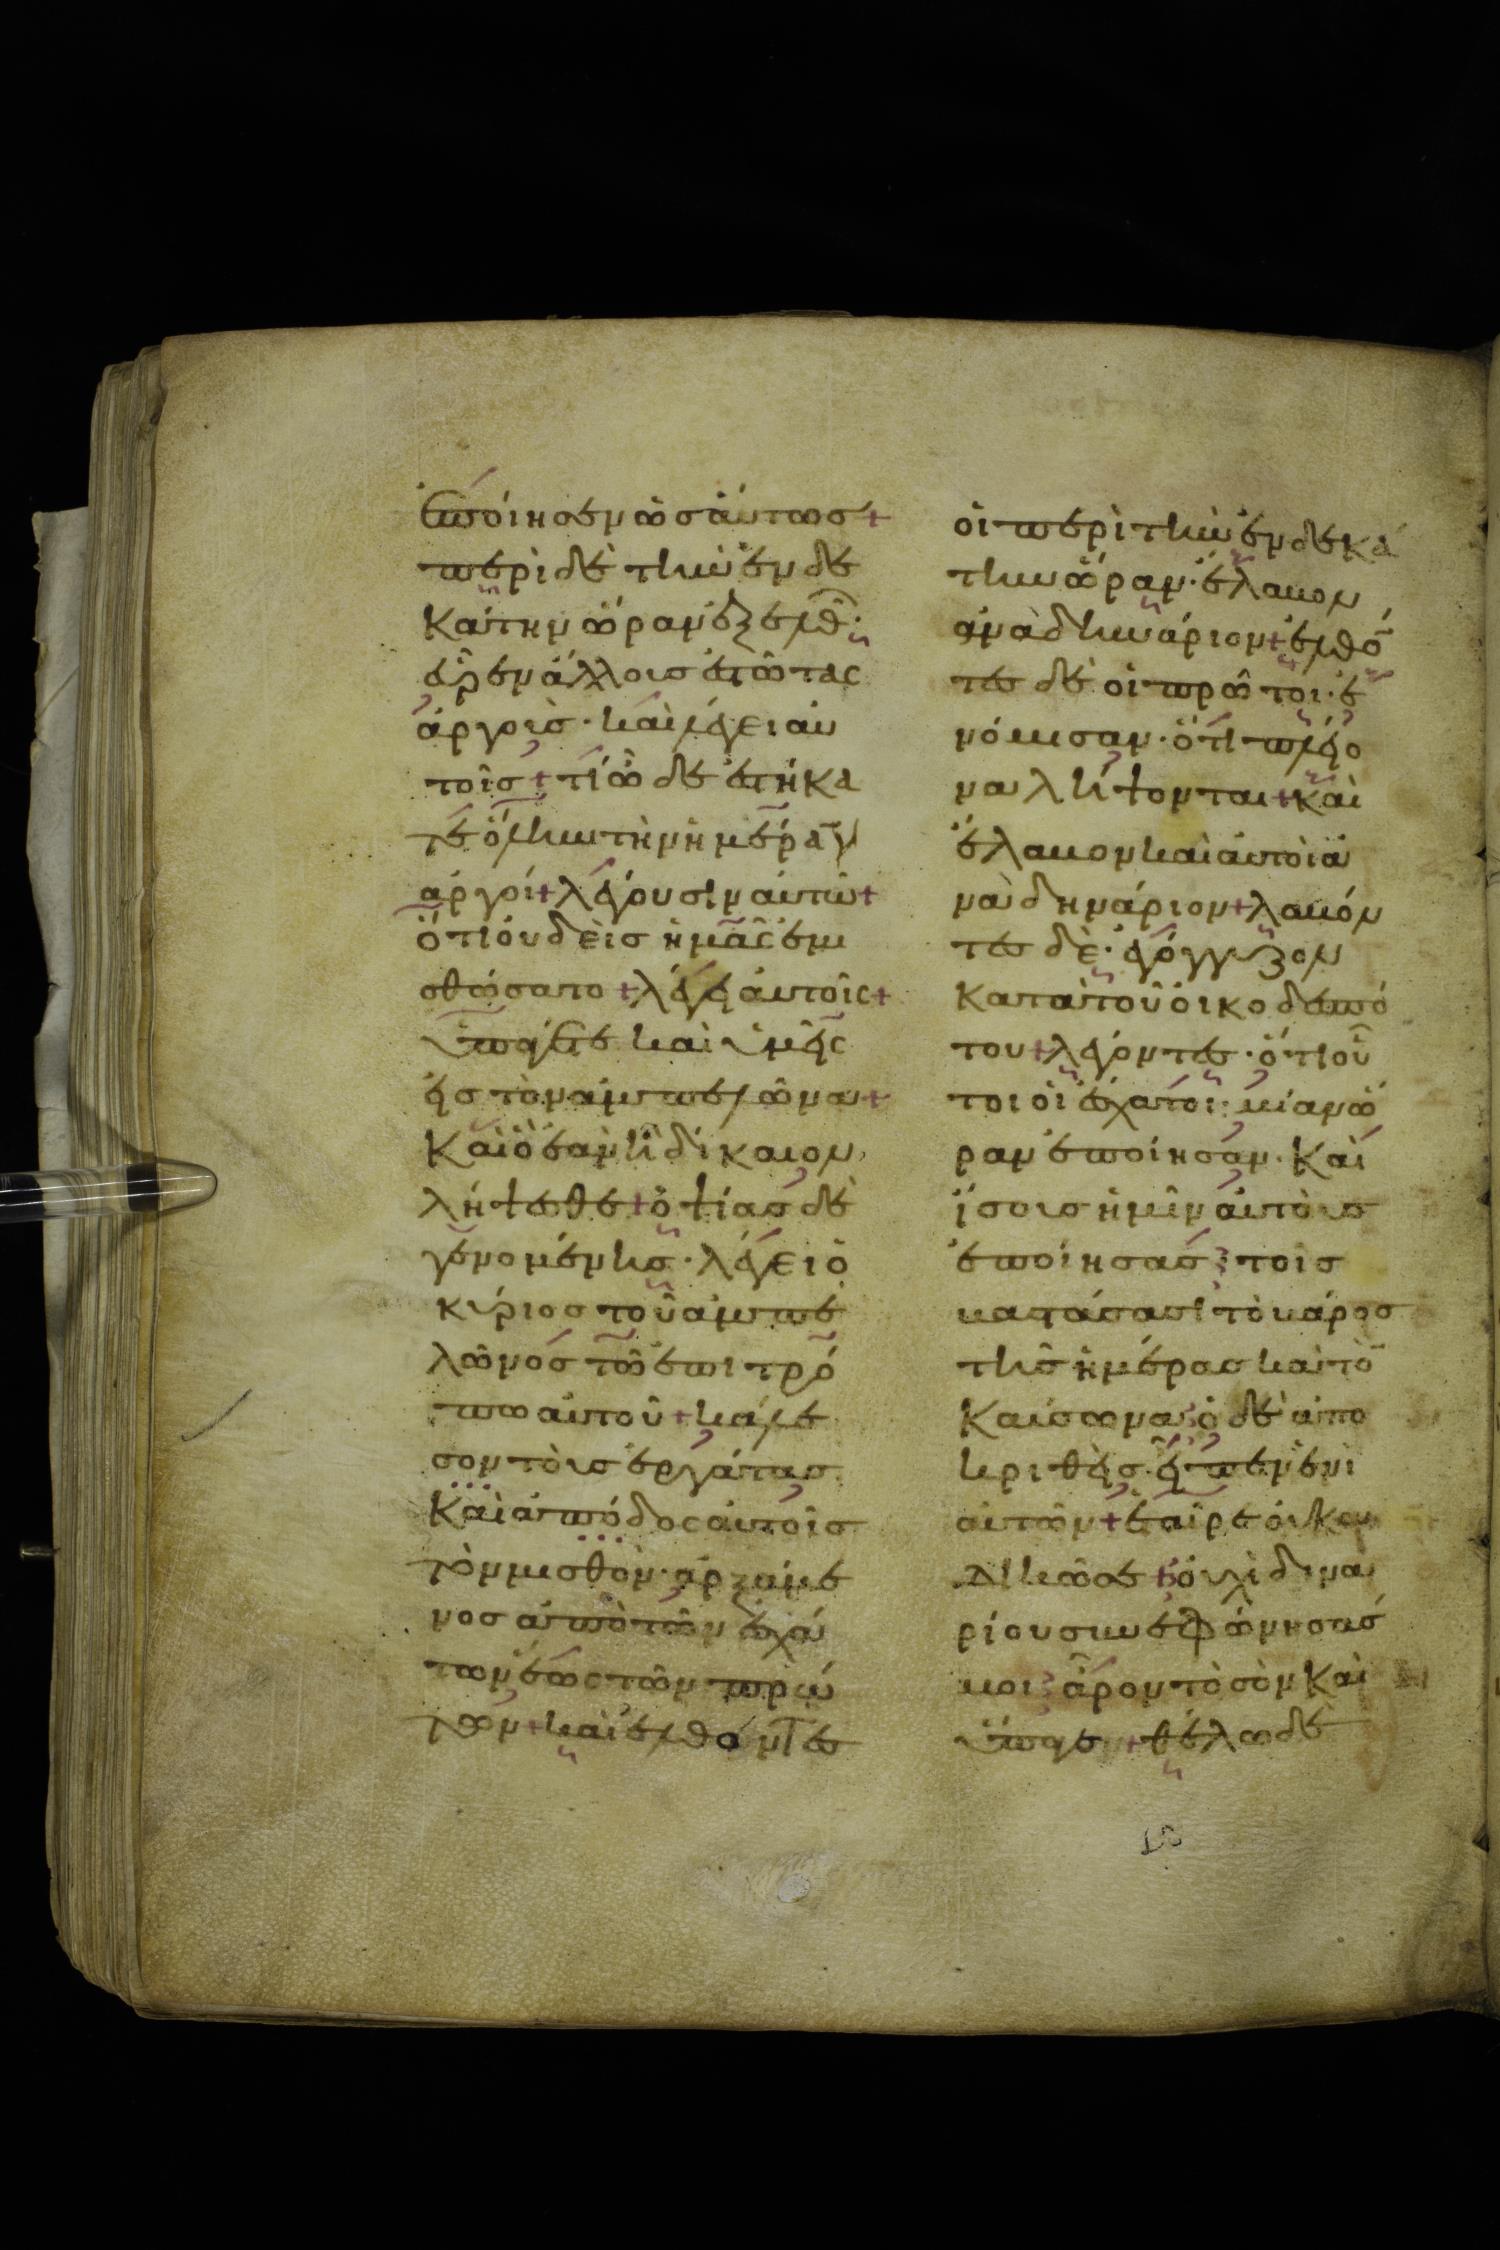 ἐποίησεν ὡσάυτως +
περὶ δὲ τὴν ἑνδε
κάτην ὥραν ἐξελθ·
εὗρεν ἄλλους ἑστῶτας
ἀργοὺς · καὶ λέγει αὐ
τοῖς + τί ὧδε ἑστήκα
τε ὅλην τὴν ἡμέραν
ἀργοί + λέγουσιν αὐτῶ +
ὅτι οὐδεὶς ἡμᾶς ἐμι
σθώσατο + λέγει αὐτοῖς +
ὑπάγετε καὶ ὑμεῖς
εἰς τὸν ἀμπελῶνα +
καὶ ὃ ἐὰν ῇ δίκαιον
λήψεσθε + ὀψίας δὲ
γενομένης · λέγει ὁ
κύριος τοῦ ἀμπε
λῶνος τῶ ἐπιτρό
πω αὐτοῦ + κάλε
σον τοὺς ἐργάτας
καὶ ἀπόδος αὐτοῖς
τὸν μισθὸν · ἀρξάμε
νος ἀπὸ τῶν ἐσχά
των ἕως τῶν πρώ
των + καὶ ἐλθόντες
οἱ περὶ τὴν ἑνδεκά
την ὥραν · ἔλαβον
ἀνὰ δηνάριον + ἐλθό
τες δὲ οἱ πρῶτοι · ἐ
νόμισαν · ὅτι πλείο
να λήψονται + καὶ
ἔλαβον καὶ αὐτοὶ ἀ
νὰ δηνάριον + λαβόν
τες δὲ · ἐγόγγυζον
κατὰ τοῦ οἰκοδεσπό
του + λέγοντες · ὅτι οὗ
τοι οἱ ἔσχατοι · μίαν ὥ
ραν ἐποίησαν · καὶ
ἴσους ἡμῖν αὐτοὺς
ἐποίησας τοῖς
βαστάσασι τὸ βάρος
τῆς ἡμέρας καὶ τὸ
καύσωνα ὁ δὲ ἀπο
κριθεὶς · εἶπεν ἑνὶ
αὐτῶν + ἑταῖρε οὐκ
ἀδικῶ σε + οὐχὶ δηνα
ρίου συνεφώνησας
μοι ἆρον τὸ σὸν καὶ
ὕπαγε + θέλω δὲ